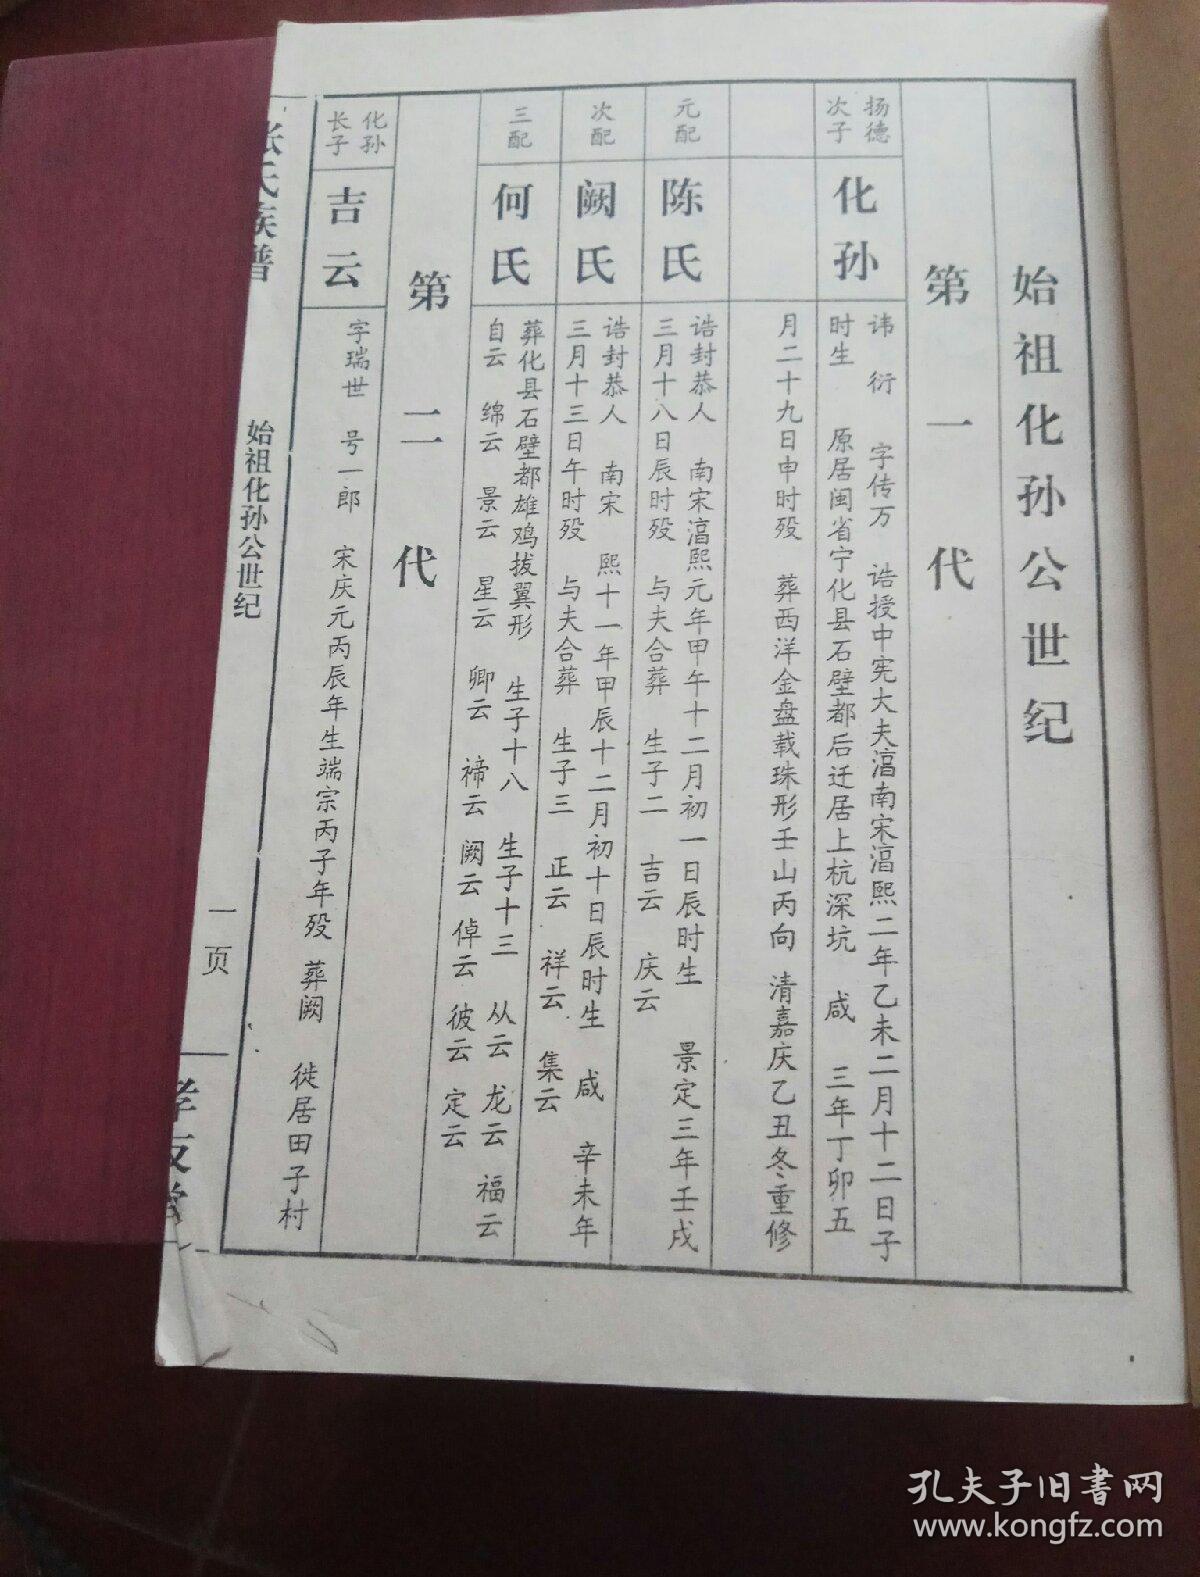 始祖化孙公世纪
第一代
扬德
次子
化孙
讳 衍 字传万 诰授中宪大夫湻南宋湻熙二年乙未二月十二日子
时生 原居闽省宁化县石壁都后迁居上杭深坑 咸 三年丁卯五
月二十九日申时殁 葬西洋金盘载珠形壬山丙向 清嘉庆乙丑冬重修
元配
陈氏
诰封恭人 南宋湻熙元年甲午十二月初一日辰时生 景定三年壬戌
三月十八日辰时殁 与夫合葬 生子二 吉云 庆云
次配
阙氏
诰封恭人 南宋 熙十一年甲辰十二月初十日辰时生 咸 辛未年
三月十三日午时殁 与夫合葬 生子三 正云 祥云 集云
三配
何氏
葬化县石壁都雄鸡拔翼形 生子十八 生子十三 从云 龙云 福云
自云 绵云 景云 星云 卿云 禘云 阙云 倬云 彼云 定云
第二代
化孙
长子
吉云
字瑞世 号一郎 宋庆元丙辰年生端宗丙子年殁 葬阙 徙居田子村
张氏族谱
始祖化孙公世纪
一页
孝友堂
孔夫子旧书网
www.kongfz.com